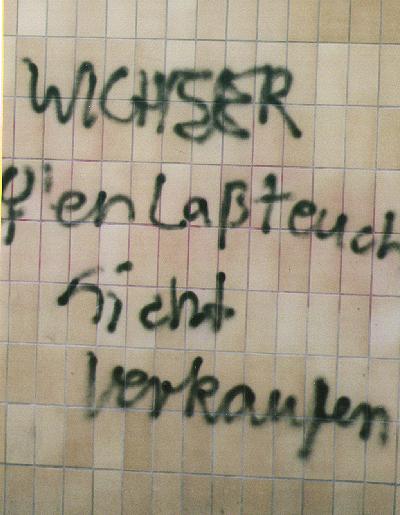 WICHSER
Laßt euch
nicht
verkaufen